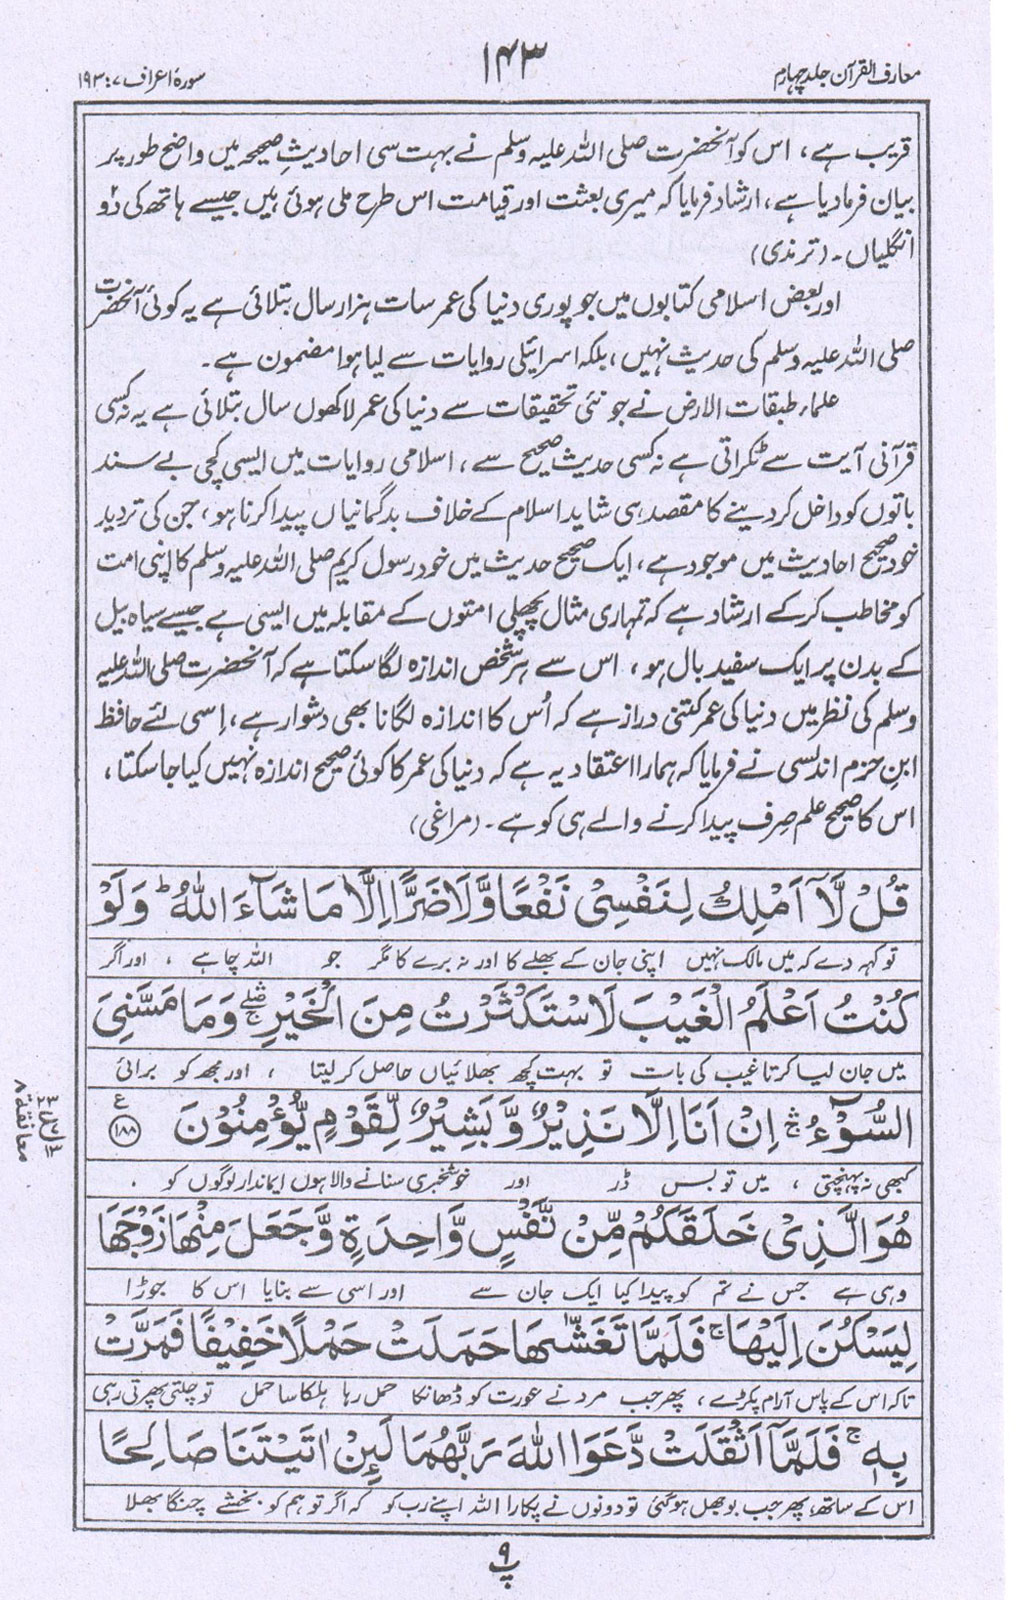 معارف القرآن جلد چہارم
۱۴۳
سورۂ اعراف ۷: ۱۹۳
قریب ہے، اس کو آنحضرت صلی اللہ علیہ وسلم نے بہت سی احادیثِ صحیحہ میں واضح طور پر
بیان فرما دیا ہے، ارشاد فرمایا کہ میری بعثت اور قیامت اس طرح ملی ہوئی ہیں جیسے ہاتھ کی دو
انگلیاں۔ (ترمذی)
اور بعض اسلامی کتابوں میں جو پوری دنیا کی عمر سات ہزار سال بتلائی ہے یہ کوئی آنحضرت
صلی اللہ علیہ وسلم کی حدیث نہیں، بلکہ اسرائیلی روایات سے لیا ہوا مضمون ہے۔
علماء طبقات الارض نے جو نئی تحقیقات سے دنیا کی عمر لاکھوں سال بتلائی ہے یہ نہ کسی
قرآنی آیت سے ٹکراتی ہے نہ کسی حدیث صحیح سے، اسلامی روایات میں ایسی کچی بے سند
باتوں کو داخل کر دینے کا مقصد ہی شاید اسلام کے خلاف بدگمانیاں پیدا کرنا ہو، جن کی تردید
خود صحیح احادیث میں موجود ہے، ایک صحیح حدیث میں خود رسول کریم صلی اللہ علیہ وسلم کا اپنی امت
کو مخاطب کرکے ارشاد ہے کہ تمہاری مثال پچھلی امتوں کے مقابلہ میں ایسی ہے جیسے سیاہ بیل
کے بدن پر ایک سفید بال ہو، اس سے ہر شخص اندازہ لگا سکتا ہے کہ آنحضرت صلی اللہ علیہ
وسلم کی نظر میں دنیا کی عمر کتنی دراز ہے کہ اُس کا اندازہ لگانا بھی دشوار ہے، اِسی لئے حافظ
ابنِ حزم اندلسی نے فرمایا کہ ہمارا اعتقاد یہ ہے کہ دنیا کی عمر کا کوئی صحیح اندازہ نہیں کیا جا سکتا،
اس کا صحیح علم صِرف پیدا کرنے والے ہی کو ہے۔ (مراغی)
قُلْ لَّاۤ اَمْلِكُ لِنَفْسِیْ نَفْعًا وَّلَا ضَرًّا اِلَّا مَا شَآءَ اللّٰهُ ؕ وَلَوْ
تو کہہ دے کہ میں مالک نہیں اپنی جان کے بھلے کا اور نہ برے کا مگر جو اللہ چاہے، اور اگر
كُنْتُ اَعْلَمُ الْغَیْبَ لَاسْتَكْثَرْتُ مِنَ الْخَیْرِ ۛۚ وَمَا مَسَّنِیَ
میں جان لیا کرتا غیب کی بات تو بہت کچھ بھلائیاں حاصل کر لیتا، اور مجھ کو برائی
السُّوْٓءُ ۛۚ اِنْ اَنَا اِلَّا نَذِیْرٌ وَّبَشِیْرٌ لِّقَوْمٍ یُّؤْمِنُوْنَ ﴿۱۸۸﴾ ع
کبھی نہ پہنچتی، میں تو بس ڈر اور خوشخبری سنانے والا ہوں ایماندار لوگوں کو۔
هُوَ الَّذِیْ خَلَقَكُمْ مِّنْ نَّفْسٍ وَّاحِدَةٍ وَّجَعَلَ مِنْهَا زَوْجَهَا
وہی ہے جس نے تم کو پیدا کیا ایک جان سے اور اسی سے بنایا اس کا جوڑا
لِیَسْكُنَ اِلَیْهَا ۚ فَلَمَّا تَغَشّٰىهَا حَمَلَتْ حَمْلًا خَفِیْفًا فَمَرَّتْ
تاکہ اس کے پاس آرام پکڑے، پھر جب مرد نے عورت کو ڈھانکا حمل رہا ہلکا سا حمل تو چلتی پھرتی رہی
بِهٖ ۚ فَلَمَّاۤ اَثْقَلَتْ دَّعَوَا اللّٰهَ رَبَّهُمَا لَىِٕنْ اٰتَیْتَنَا صَالِحًا
اس کے ساتھ، پھر جب بوجھل ہوگئی تو دونوں نے پکارا اللہ اپنے رب کو کہ اگر تو ہم کو بخشے چنگا بھلا
معانقۃ ۸
پ ۹